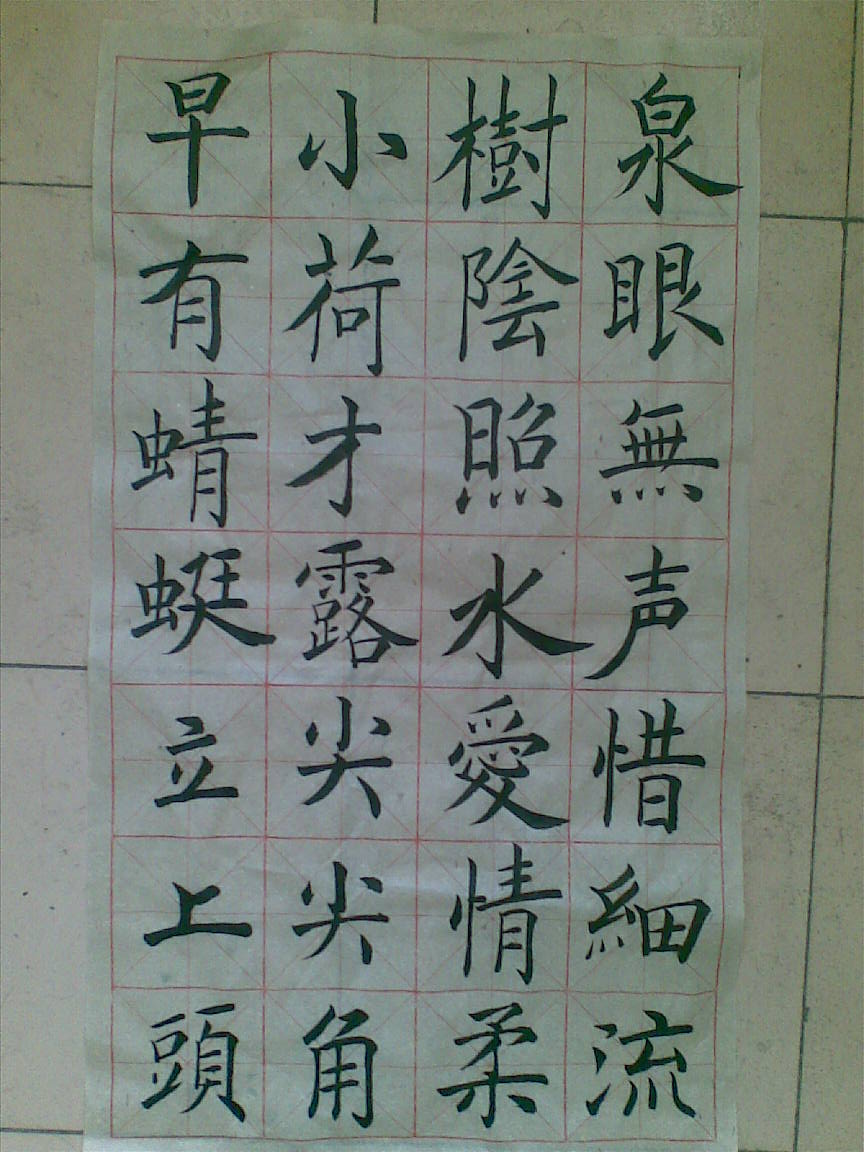 泉眼無声惜細流
樹陰照水愛情柔
小荷才露尖尖角
早有蜻蜓立上頭